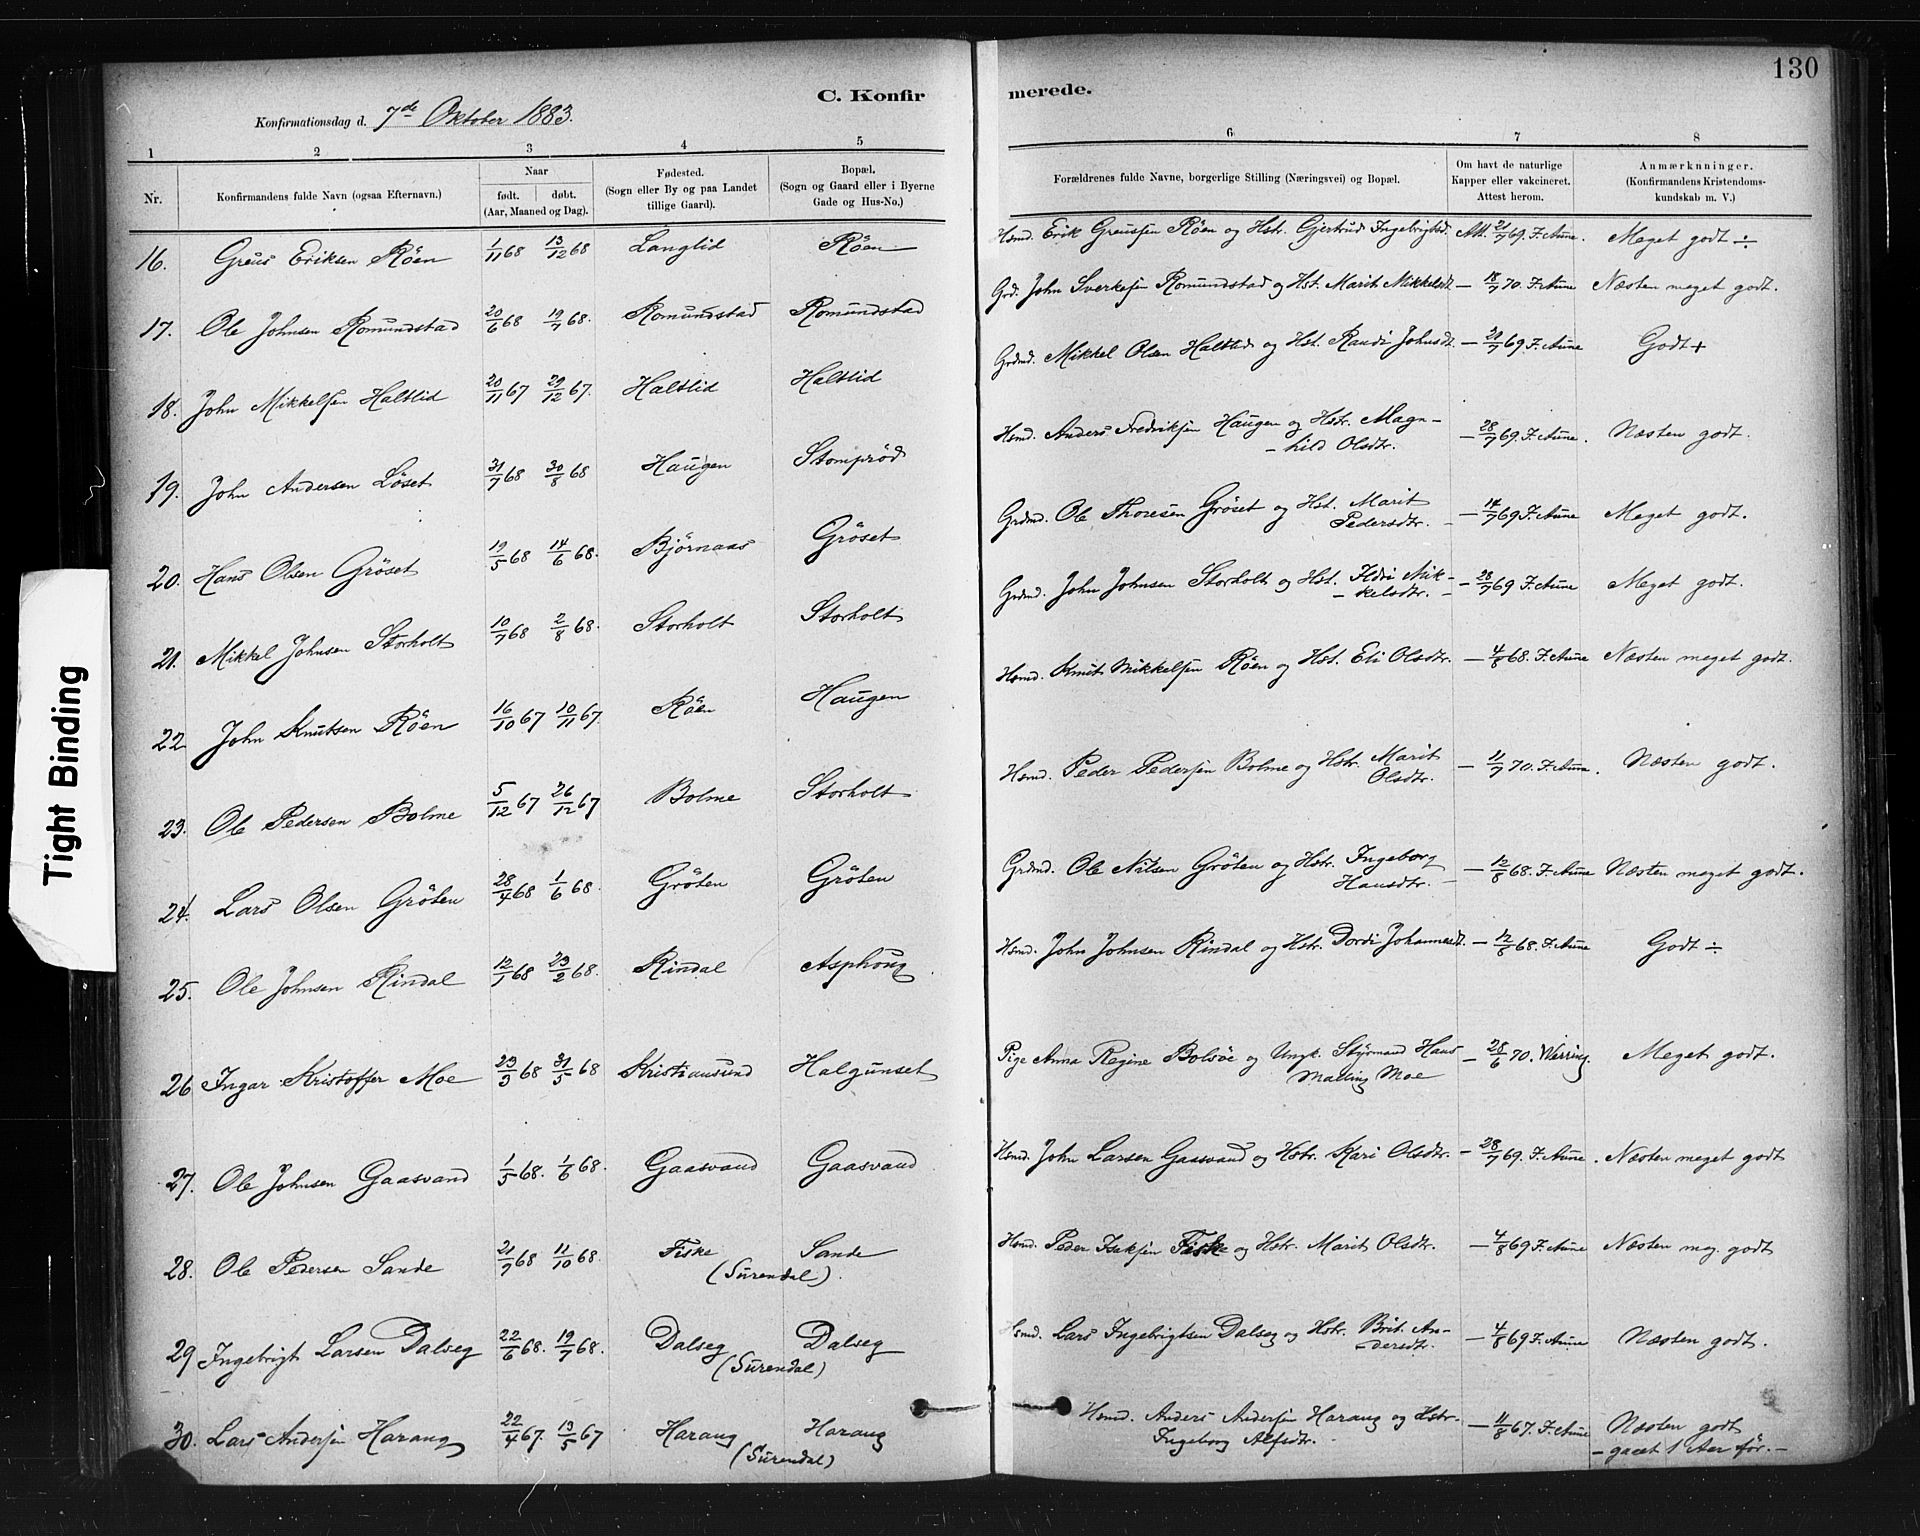 130
C. Konfirmerede.
Konfirmationsdag d. 7de Oktober 1883.
1 2 3 4 5 6 7 8
Nr.
Konfirmandens fulde Navn (ogsaa Efternavn.)
Naar
født. døbt.
(Aar, Maaned og Dag).
Fødested.
(Sogn eller By og paa Landet
tillige Gaard).
Bopæl.
(Sogn og Gaard eller i Byerne
Gade og Hus-No.)
Forældrenes fulde Navne, borgerlige Stilling (Næringsvei) og Bopæl.
Om havt de naturlige
Kapper eller vakcineret.
Attest herom.
Anmærknninger.
(Konfirmandens Kristendoms-
kundskab m. V.)
16. Greus Eriksen Röen 1/11 68 13/12 68 Langlid Röen Hsmd. Erik Greussen Röen og Hst. Gjertrud Ingebrigtsd. Att. 21/7 69. F. Aune. Meget godt ÷
17. Ole Johnsen Romundstad 20/6 68 19/7 68. Romundstad Romundstad Grd. John Sverkesen Romundstad og Hst. Marit Mikkelsdt. — 18/7 70. F. Aune Næsten meget godt.
18. John Mikkelsen Haltlid 20/11 67 29/12 67. Haltlid Haltlid Grdmd. Mikkel Olsen Haltlid og Hst. Randi Johnsdt. — 21/7 69 F. Aune Godt +
19. John Andersen Löset 31/7 68 30/8 68 Haugen Stomprød Hsmd. Anders Fredriksen Haugen og Hstr. Magn-
hild Olsdtr. — 28/7 69. F. Aune. Næsten godt.
20. Hans Olsen Gröset 19/5 68 14/6 68. Bjørnaas Gröset Grdmd. Ole Thoresen Gröset og Hst. Marit
Pedersdtr. — 14/7 69 F. Aune Meget godt.
21. Mikkel Johnsen Storholt 10/7 68 2/8 68. Storholt Storholt Grdmd. John Johnsen Storholt og Hst. Ildri Mik-
kelsdtr. — 28/7 69 F. Aune Meget godt.
22 John Knutsen Röen 16/10 67 10/11 67. Röen Haugen Hsmd. Knut Mikkelsen Röen og Hst. Eli Olsdtr. — 4/8 68. F. Aune Næsten meget godt.
23. Ole Pedersen Bolme 5/12 67 26/12 67 Bolme Storholt Hsmd. Peder Pedersen Bolme og Hstr. Marit
Olsdtr. — 11/7 70. F. Aune. Næsten godt.
24. Lars Olsen Gröten 28/4 68 1/6 68. Gröten Gröten Grdmd. Ole Nilsen Gröten og Hstr. Ingeborg
Hansdtr. — 12/8 68. F. Aune Næsten meget godt.
25. Ole Johnsen Rindal 12/1 68 23/2 68. Rindal Asphoug Hsmd. John Johnsen Rindal og Hstr. Dordi Johannesdt. — 12/8 68. F. Aune Godt ÷
26 Ingar Kristoffer Moe 23/3 68 31/5 68 Kristiansund Halgunset Pige Anna Regine Bolsöe og Ungk. Styrmand Hans
Malling Moe — 28/6 70. Werring. Meget godt.
27. Ole Johnsen Gaasvand 1/5 68. 1/6 68. Gaasvand Gaasvand Hsmd. John Larsen Gaasvand og Hstr. Kari Olsdtr. — 28/7 69. F. Aune. Næsten meget godt
28. Ole Pedersen Sande 21/7 68 11/10 68. Fiske Sande
(Surendal). Hsmd. Peder Isaksen Fiske og Hstr. Marit Olsdtr. — 4/8 69 F. Aune Næsten meg. godt
29 Ingebrigt Larsen Dalseg 22/6 68. 19/7 68. Dalseg Dalseg
(Surendal) Hsmd. Lars Ingebrigtsen Dalseg og Hstr. Brit An-
dersdtr. — 4/8 69 F. Aune Næsten godt.
30. Lars Andersen Harang 22/4 67. 13/5 67 Harang Harang
(Surendal) Hsmd. Anders Andersen Harang og Hstr.
Ingeborg Alfsdtr. — 11/8 67. F. Aune Næsten godt
— gaaet 1 Aar før. —
Tight Binding